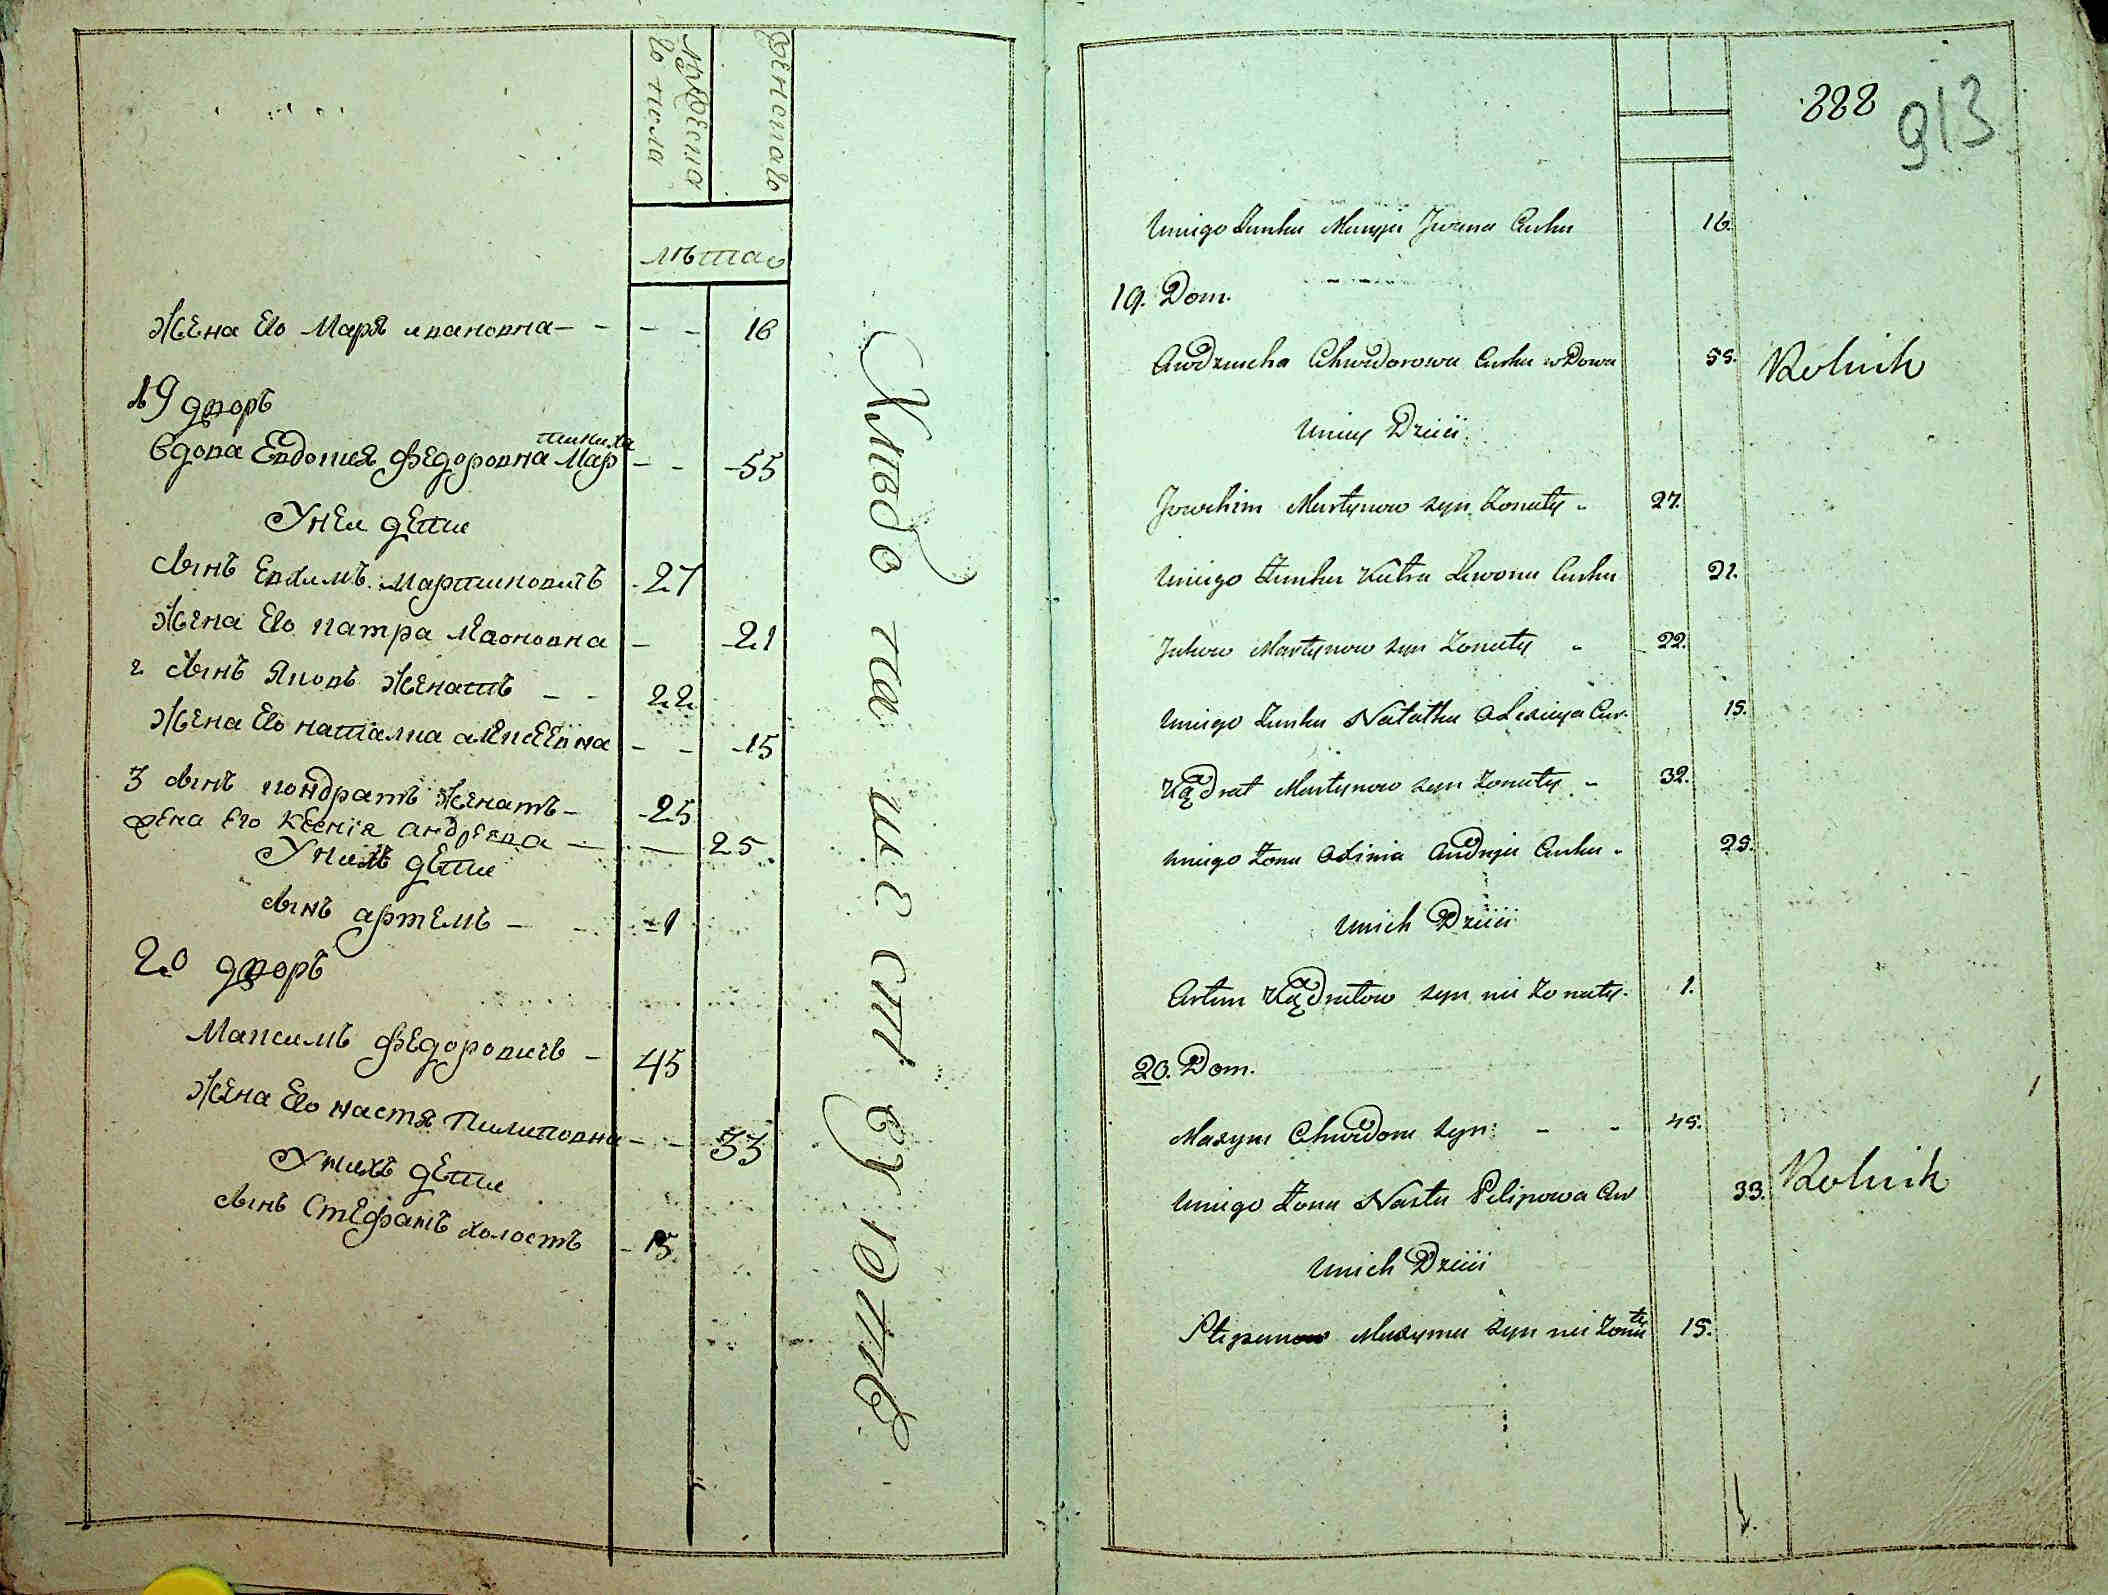 мужеска
го пола
женскаго
лѣта
Жена Его Маря ивановна — — — — 16
19 дворъ
тиниха
Вдова Евдокия Федоровна Мар — — 55
Унеи дети
сынъ Евхимъ Мартиновичъ 27
Жена Его катра Леоновна — 21
2 сынъ Яковъ Женатъ — — 22
Жена Его наталиа алексеевна — — 15
3 сынъ кондратъ Женатъ — 25
жена Его Ксенія андреева — — 25
Унихъ дети
сынъ артемъ — — 1
20 дворъ
Максимъ Федоровичъ — 45
Жена Его настя Пилиповна — — 33
Унихъ дети
сынъ Стефанъ холостъ 15
Хлебопашествуютъ
888
913
Uniego Żonka Maryja Jwana Curka 16.
19. Dom.
Awdziucha Chwidorowa Curka wdowa 55. Rolnik
Uniey Dzieii
Jowchim Martynow syn Żonaty 27.
Uniego Żonka Katra Lewona Curka 21.
Jakow Martynow syn Żonaty 22.
Uniego Żonka Natalka Alexieja Cur. 15.
Kądrat Martynow syn Żonaty 32.
uniego Żona Axinia Andreja Curka 25.
Unich Dzieii
Artem Kądratow syn nie Żonaty. 1.
20. Dom.
Maxym Chwidora syn — — 45.
Uniego Żona Nasta Pelipowa Cur 33. Rolnik
Unich Dzieii
Stepan Maxyma syn nie Żonaty 15.